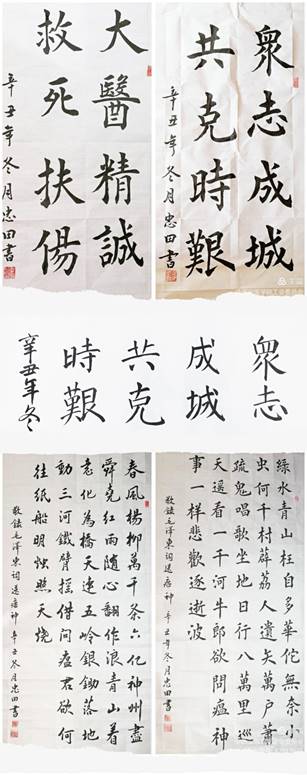 大醫精誠
救死扶傷
辛丑年冬月忠田書
衆志成城
共克時艱
辛丑年冬月忠田書
衆志
成城
共克
時艱
辛丑年冬
綠水青山枉自多華佗無奈小
虫何千村薜荔人遺矢萬户蕭
疏鬼唱歌坐地日行八萬里巡
天遥看一千河牛郎欲問瘟神
事一樣悲歡逐逝波
敬錄毛澤東詞送瘟神 辛丑冬月忠田書
春風楊柳萬千条六亿神州盡
舜堯紅雨随心翻作浪青山着
意化為橋天連五岭銀鋤落地
動三河鐵臂摇借問瘟君欲何
往紙船明燭照天燒
敬錄毛澤東詞送瘟神 辛丑冬月忠田書